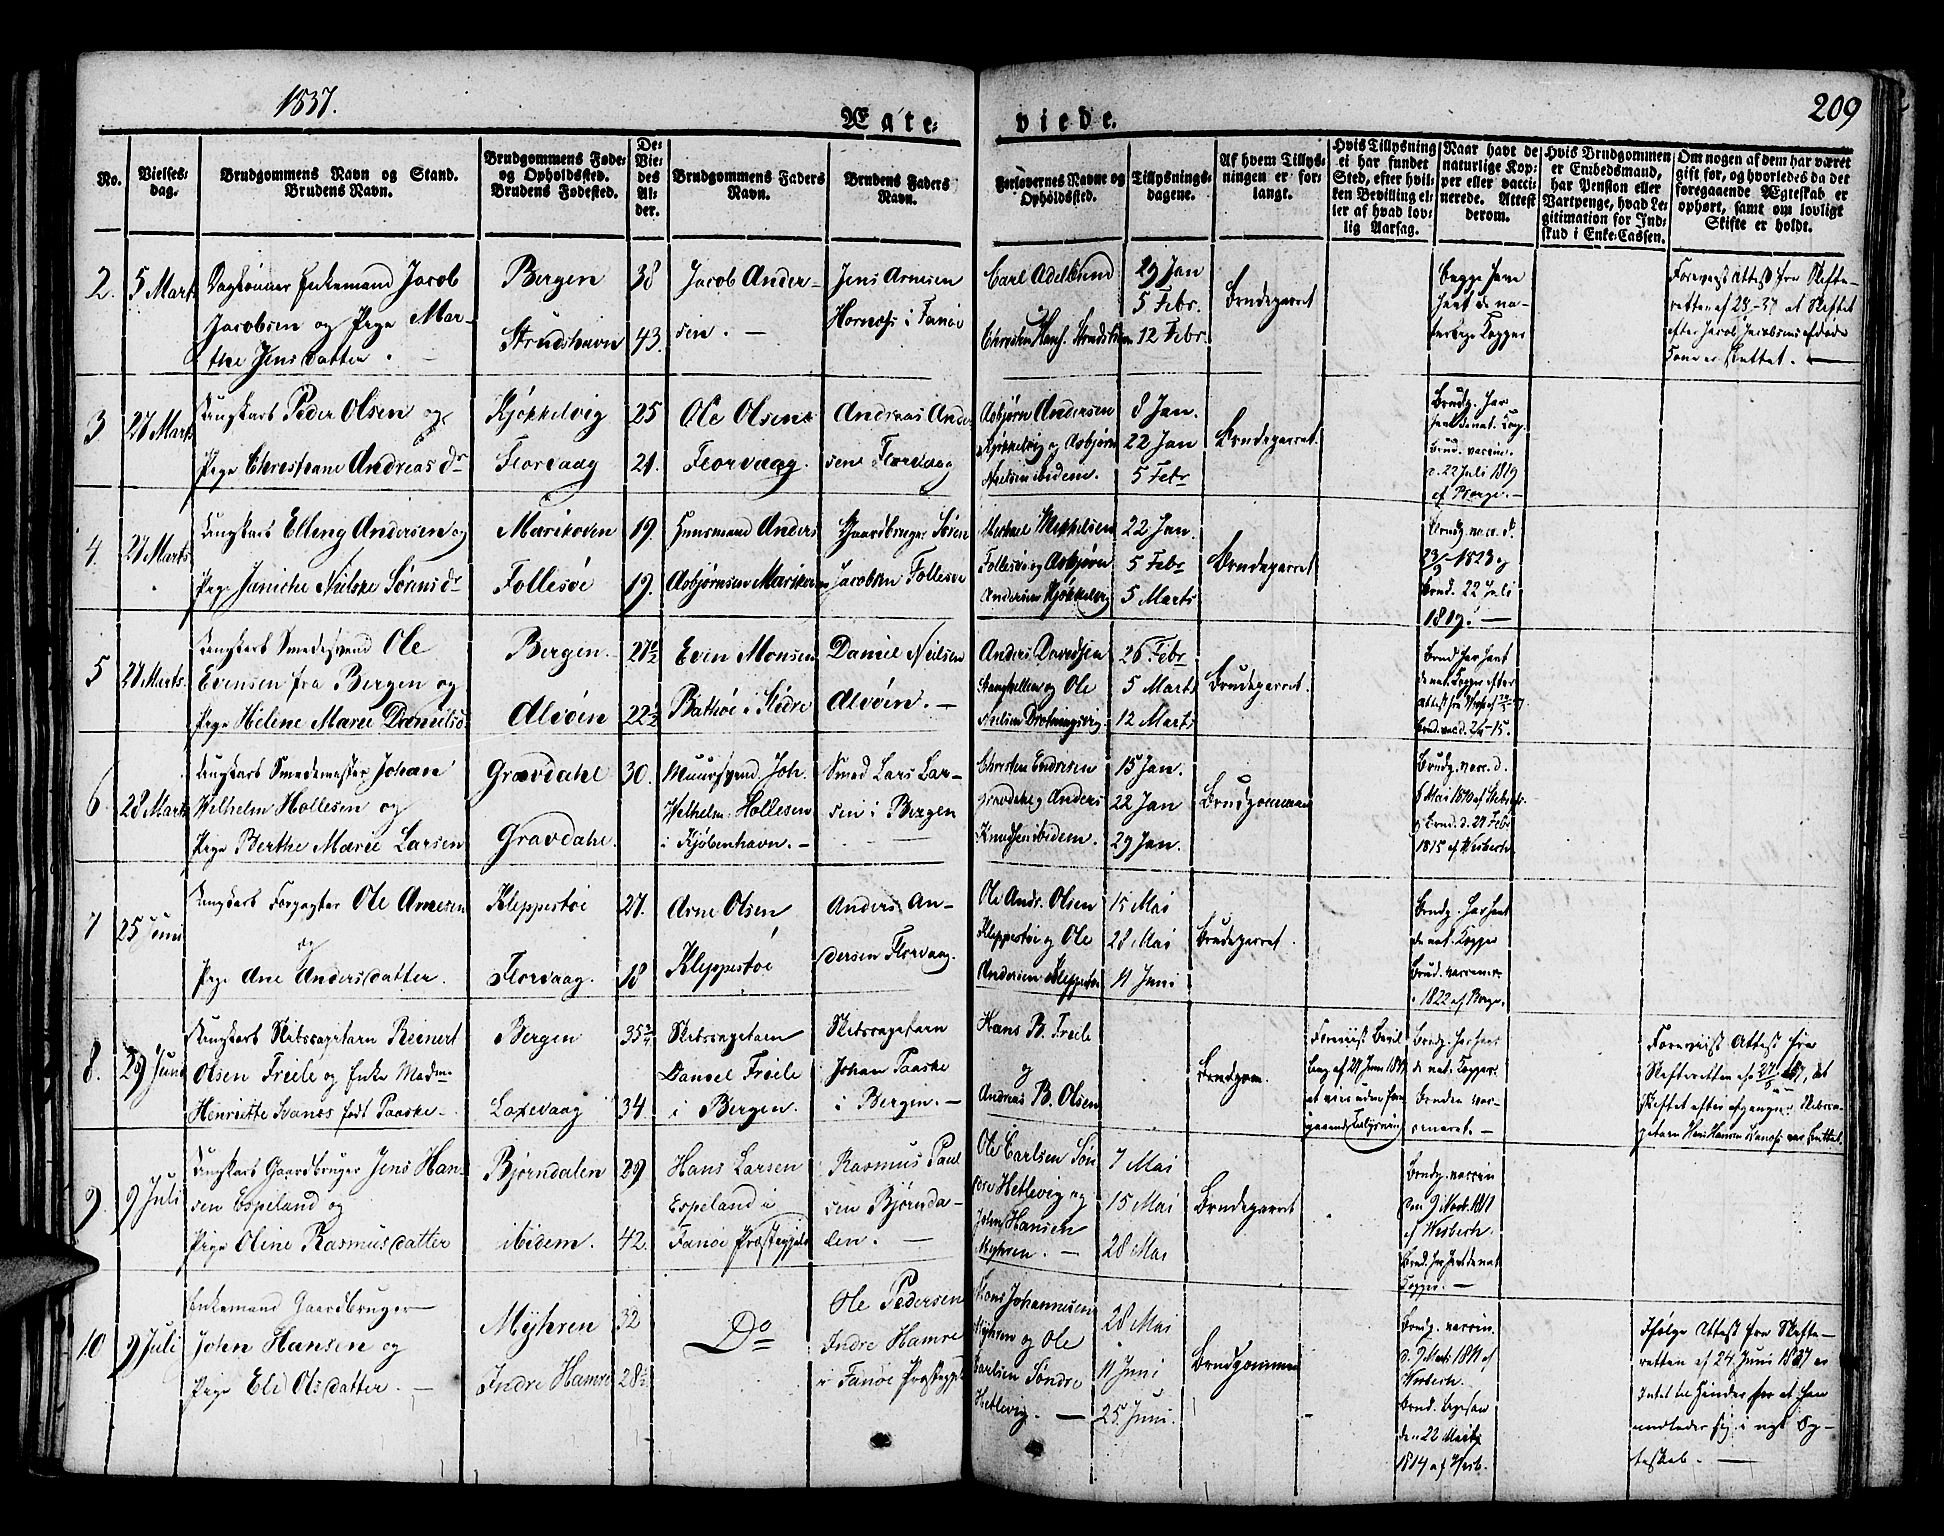 1837.
Ægte-
viede.
209
No.
Vielses-
dag.
Brudgommens Navn og Stand.
Brudens Navn.
Brudgommens Føde-
og Opholdssted.
Brudens Fødested.
De
Vie-
des
Al-
der.
Brudgommens Faders
Navn.
Brudens Faders
Navn.
Forlovernes Navne og
Opholdssted.
Tillysnings-
dagene.
Af hvem Tillys-
ningen er for-
langt.
Hvis Tillysning
ei har fundet
Sted, efter hvil-
ken Bevilling el-
ler af hvad lov-
lig Aarsag.
Naar havt de
naturlige Kop-
per eller vacci-
nerede. Attest
derom.
Hvis Brudgommen
er Embedsmand,
har Pension eller
Vartpenge, hvad Le-
gitimation for Ind-
skud i Enke-Cassen.
Om nogen af dem har været
gift før, og hvorledes da det
foregaaende Ægteskab er
ophørt, samt om lovligt
Skifte er holdt.
2. 5 Marts
Enkemand Jacob
Jacobsen og Pige Mar-
the Jensdatter.
Bergen
Strudshavn
38
43.
Jacob Ander-
sen.
Jens Arnesen
Hornæss i Fanøe
Carl Adelsund
Christen Hans.
29 Jan
5 Febr.
12 Febr.
Brudeparret
Begge have
havt de na-
turlige Kopper
Foreviist Attest fra Skifte-
retten at Skiftet
efter Jacob Jacobsens afdøde
Kone er sluttet.
3 27 Marts
Ungkarl Peder Olsen og
Pige Christiane Andreas dr
Kjøkkelvig
Florvaag
25
21.
Ole Olsen
Florvaag.
Andreas Ander
sen Florvaag
Asbjørn Andersen
Kjøkkelvig og Asbjørn
Nielsen ibidem.
8 Jan.
22 Jan
5 Febr
Brudeparret.
Brudg. har
havt de nat. Kop.
Brud. vaccin.
d. 22 Juli 1819
4 27 Marts
Ungkarl Elling Andersen og
Pige Janiche Nilske Sørens dr
Marikoven
Follesøe
19.
19.
Huusmand Anders
Asbjørnsen Marikoven
Gaardbruger Søren
Jacobsen Follesøe
Michael Mikkelsen
Follesøe og Asbjørn
Andersen Kjøkkelvig
22 Jan.
5 Febr
5 Marts
Brudeparret
Brudg. vacc. d.
Brud. 22 Juli
1819.
5 27 Marts.
Ungkarl Smedesvend Ole
Evensen fra Bergen og
Pige Helene Marie Danielsd.
Bergen.
Alvøen
27½
22½
Evin Monsen
i Fjeldre
Daniel Nielsen
Alvøen.
Anders Davidsen
og Ole
Nielsen Drotningsvig.
26 Febr
5 Marts
12 Marts
Brudeparret.
Brudg. har havt
de nat. Kopper efter
6 28 Marts
Ungkarl Smedemester Johan
Wilhelm Hollesen og
Pige Berthe Marie Larsen
Gravdahl
Gravdahl.
30.
Muursvend. Joh.
Wilhelm Hollesen
i Kjøbenhavn.
Smed Lars Lar-
sen i Bergen
Christen Endresen
Gravdahl og Anders
Knudsen ibidem.
15 Jan.
22 Jan
29 Jan.
Brudgommen
Brudg. vacc. d.
og Brud. d. 27 Febr
1815 af Wisberth
7 25 Juni
Ungkarl Forpagter Ole Arnesen
og
Pige Ane Andersdatter.
Kleppestøe
Florvaag.
27.
18
Arne Olsen
Kleppestøe
Anders An-
dersen Florvaag.
Ole Andr. Olsen
Kleppestøe og Ole
Andersen Kleppestøe
15 Mai
28 Mai
11 Juni
Brudeparret.
Brudg. har havt
de nat. Kopper
Brud. vaccineret
1822
8. 29 Juni
Ungkarl Skibscapitain Reinert
Olsen Friele og Enke Madme
Henriette født Paaske
Bergen
Laxevaag
35¾
34.
Skibscapitain
Daniel Friele
i Bergen.
Skibscapitain
Johan Paaske
i Bergen.
Hans B. Friele
og
Andreas B. Olsen
Brudgom.
Foreviist Bevil
ling af 24 Juni 1837
at vies uden fore
gaaende Tillysning
Brudg. har havt
de nat. Kopper.
Bruden vac-
cineret.
Foreviist Attest fra
Skifteretten, at
Skiftet efter afgangne Skibsca-
pitain Hansen var sluttet.
9. 9 Juli
Ungkarl Gaardbruger Jens Han-
sen Espeland og
Pige Oline Rasmusdatter
Bjørndalen
ibidem.
29
42.
Hans Larsen
Espeland i
Fanøe Præstegjeld
Rasmus Poul
sen Bjørnda-
len.
Ole Carlsen Søn
dre Hetlevig og
John Hansen
Myhren.
7 Mai
15 Mai
28 Mai
Brudeparret
Brudg. vaccin
af Wisberth
Brud. har havt de nat
Kopper.
10 9 Juli
Enkemand Gaardbruger
John Hansen og
Pige Eli Olsdatter.
Myhren
Indre Hamre
32
28½
Do
Ole Pedersen
Indre Hamre
i Fanøe Præstegjeld
Hans Johannesen
Myhren og Ole
Carlsen Søndre
Hetlevig.
28 Mai
11 Juni
25 Juni.
Brudgommen
Brudg. vaccin.
Wisberth.
Brud.
den 22 Marts
1814 af Wisb.
Ifølge Attest fra Skifte-
retten af 24 Juni 1837 er
Intet til Hinder for at han
indlader sig i nyt Æg-
teskab.